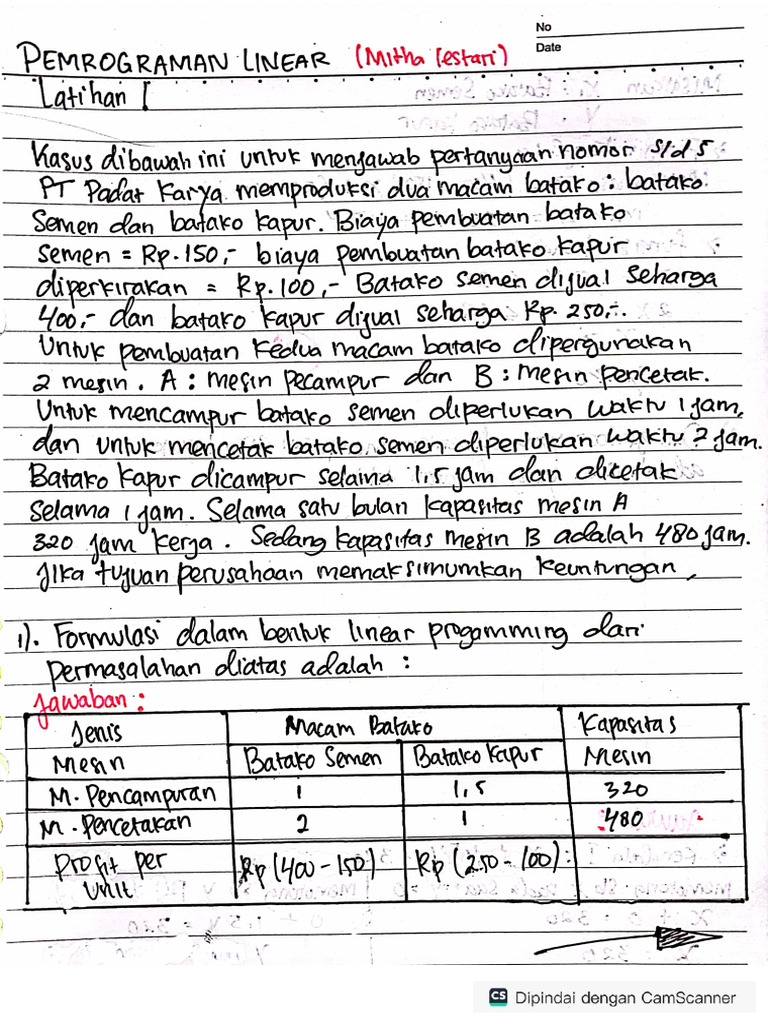 No
Date
PEMROGRAMAN LINEAR (Mitha lestari)
Latihan I
Kasus dibawah ini untuk menjawab pertanyaan nomor s/d 5
PT Padat Karya memproduksi dua macam batako : batako
Semen dan batako kapur. Biaya pembuatan batako
semen = Rp.150,- biaya pembuatan batako kapur
diperkirakan = Rp.100,- Batako semen dijual seharga
400,- dan batako kapur dijual seharga Rp. 250,-.
Untuk pembuatan kedua macam batako dipergunakan
2 mesin. A : mesin pecampur dan B : mesin pencetak.
Untuk mencampur batako semen diperlukan waktu 1 jam,
dan untuk mencetak batako semen diperlukan waktu 2 jam.
Batako kapur dicampur selama 1,5 jam dan dicetak
selama 1 jam. Selama satu bulan kapasitas mesin A
320 jam kerja. Sedang kapasitas mesin B adalah 480 jam.
Jika tujuan perusahaan memaksimumkan keuntungan,
1). Formulasi dalam bentuk linear progamming dari
permasalahan diatas adalah :
Jawaban :
Jenis Macam Batako Kapasitas
Mesin Batako Semen Batako Kapur Mesin
M. Pencampuran 1 1,5 320
M. Pencetakan 2 1 480
Profit per Rp (400 - 150) Rp (250 - 100)
Unit
CS Dipindai dengan CamScanner